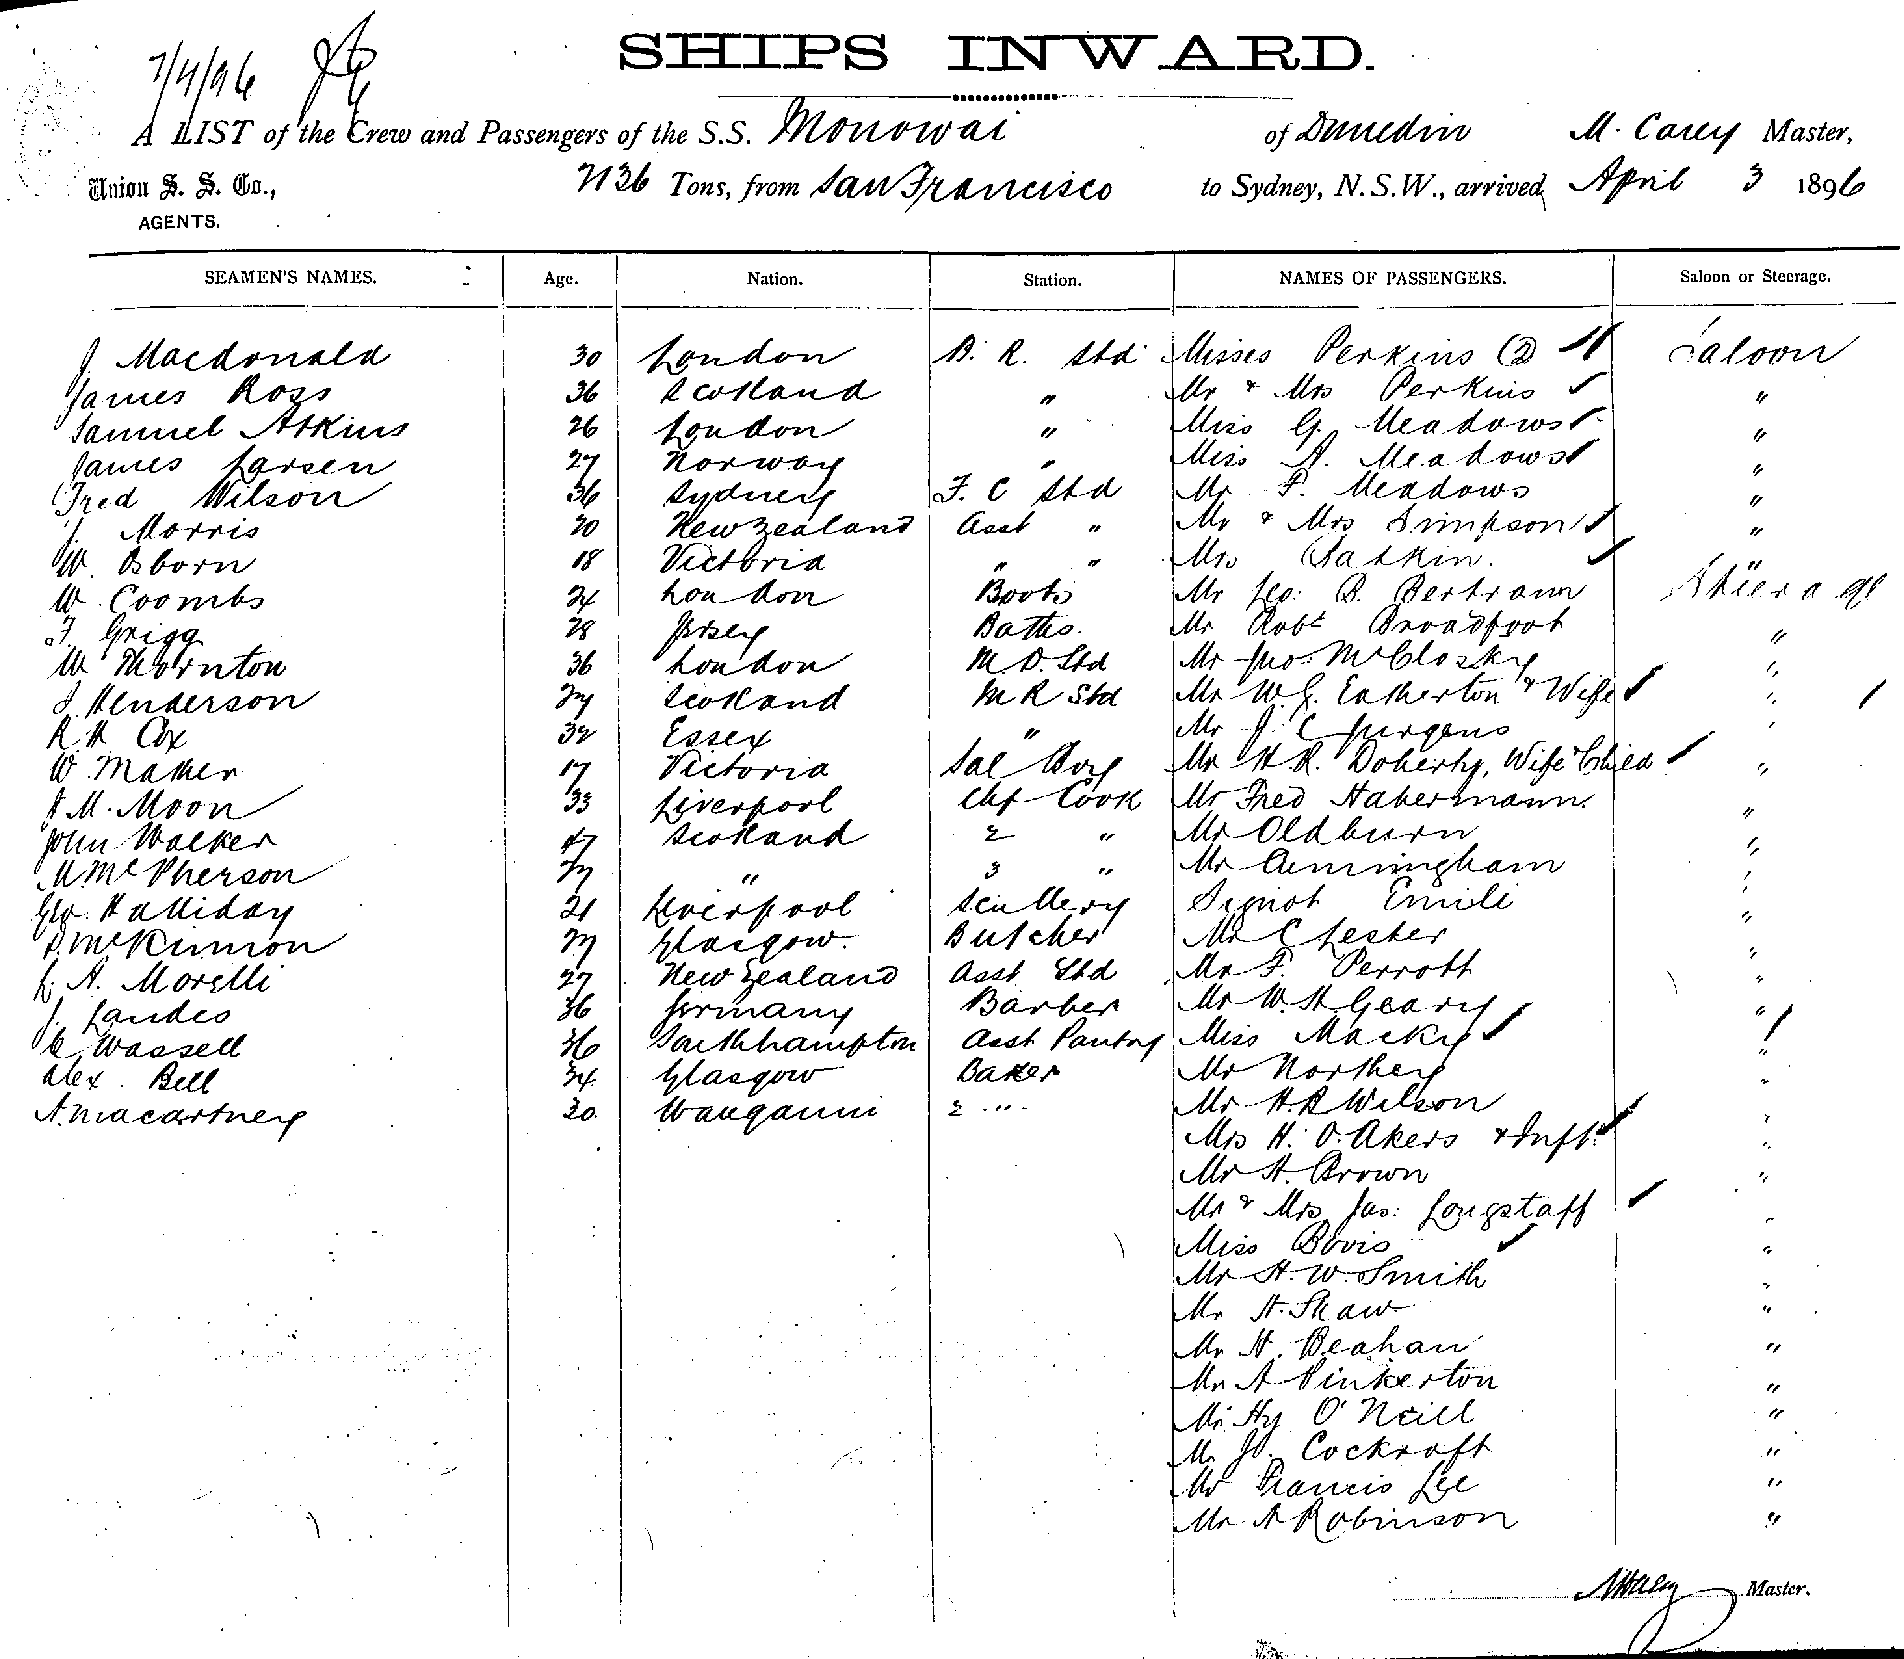 7/4/96
SHIPS INWARD.
A LIST of the Crew and Passengers of the S.S. Monowai of Dunedin M. Carey Master,
Union S. S. Co., 2136 Tons, from San Francisco to Sydney, N.S.W., arrived April 3 1896
AGENTS.
SEAMEN'S NAMES. Age. Nation. Station. NAMES OF PASSENGERS. Saloon or Steerage.
J. Macdonald 30 London B. R. Std Misses Perkins (2) Saloon
James Ross 36 Scotland " Mr & Mrs Perkins "
Samuel Atkins 26 London " Miss G. Meadows "
James Larsen 27 Norway " Miss A. Meadows "
Fred Wilson 36 Sydney F. C Std Mr F. Meadows "
J. Morris 20 New Zealand Asst " Mr & Mrs Simpson "
W. Osborn 18 Victoria " " Mrs "
W. Coombs 24 London Boots Mr Leo: B. Bertram Steerage
F. Grigg 28 Jersey Baths. Mr Robt Broadfoot "
W Thornton 36 London M.D. Std Mr Jno. McClosky "
J. Henderson Scotland M R Std Mr W.G. Eatherton & Wife "
R H Cox 32 Essex " Mr J. C Jurgens "
W. Maher 17 Victoria Sal Boy Mr H R. Doherty, Wife & Child "
M. Moon 33 Liverpool Chf Cook Mr Fred Habermann "
John Walker 47 Scotland 2 " Mr Oldburn "
M McPherson " 3 " Mr Cunningham "
Geo. Halliday 21 Liverpool Scullery Signor Emili "
McKinnon Glasgow. Butcher Mr Chester "
L. A. Morelli 27 New Zealand Asst Std Mr F. Perrott "
J. Landes 36 Germany Barber Mr W. H Geary "
C. Wassell 36 Southhampton Asst Pantry Miss Macky "
Alex. Bell 34 Glasgow Baker Mr Northey "
A. Macartney 20 Wanganui 2 " Mr H.R Wilson "
Mrs H. O. Akers & Inft. "
Mr H. Brown "
Mr & Mrs Jas: Longstaff "
Miss Bovis "
Mr H. W. Smith "
Mr H. Shaw "
Mr H. Beahan "
Mr A Pinkerton "
Mr Hy O'Neill "
Mr Jo. Cockroft "
Mr Francis Lee "
Mr A Robinson "
Master.